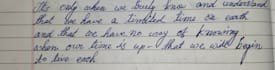 It's only when we truly know and understand
that we have a limited time on earth
and that we have no way of knowing
when our time is up - that we will begin
to live each